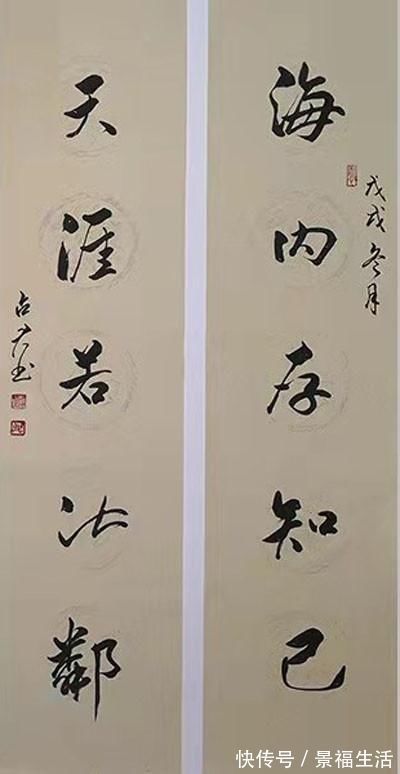 海内存知己
戊戌冬月
天涯若比鄰
占
快传号 / 景福生活